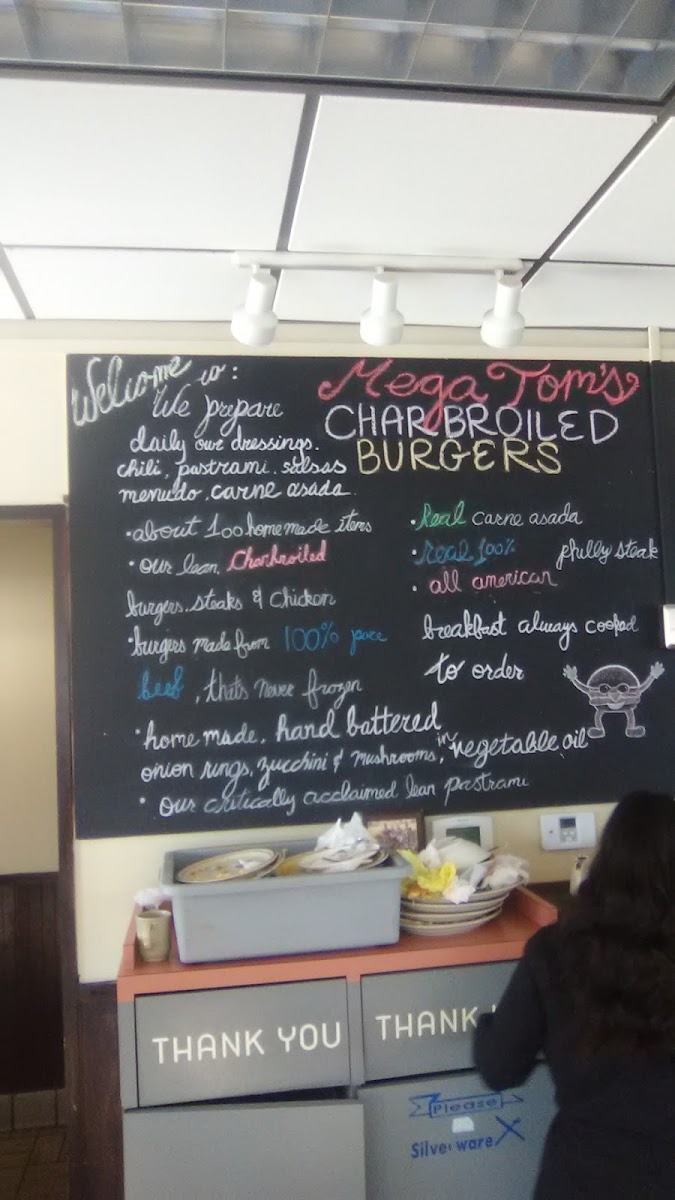 Welcome to:
Mega Tom's
CHARBROILED
BURGERS
We prepare
daily our dressings.
chili, pastrami, salsas
menudo, carne asada.
• about 100 homemade items
• our lean Charbroiled
burgers, steaks & chicken
• burgers made from 100% pure
beef, thats never frozen
• home made, hand battered
onion rings, zucchini & mushrooms, in vegetable oil
• our critically acclaimed lean pastrami
• Real carne asada
• real 100% philly steak
• all american
breakfast always cooked
to order
THANK YOU
THANK
Please
Silverware